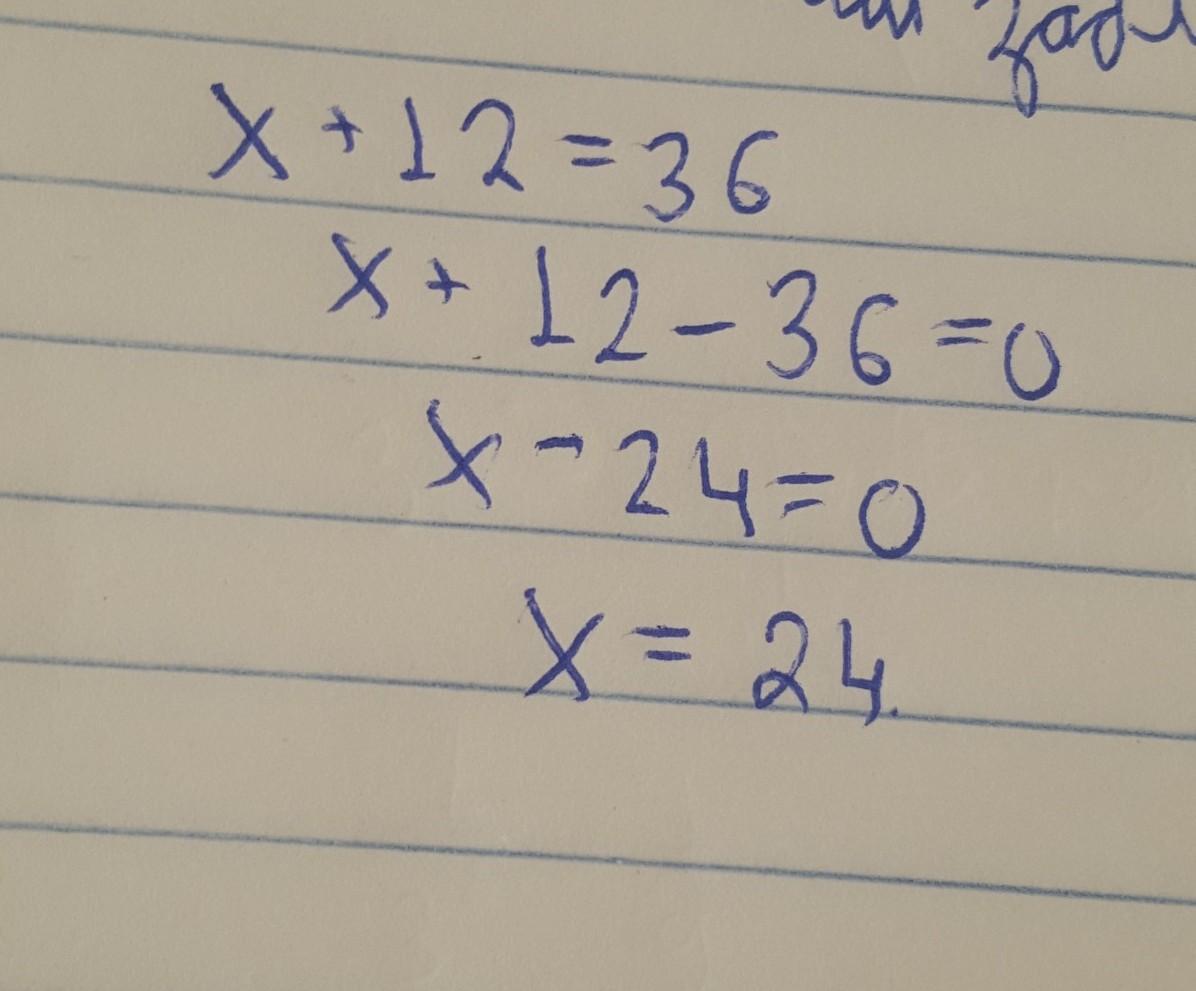 x + 12 = 36
x + 12 - 36 = 0
x - 24 = 0
x = 24.